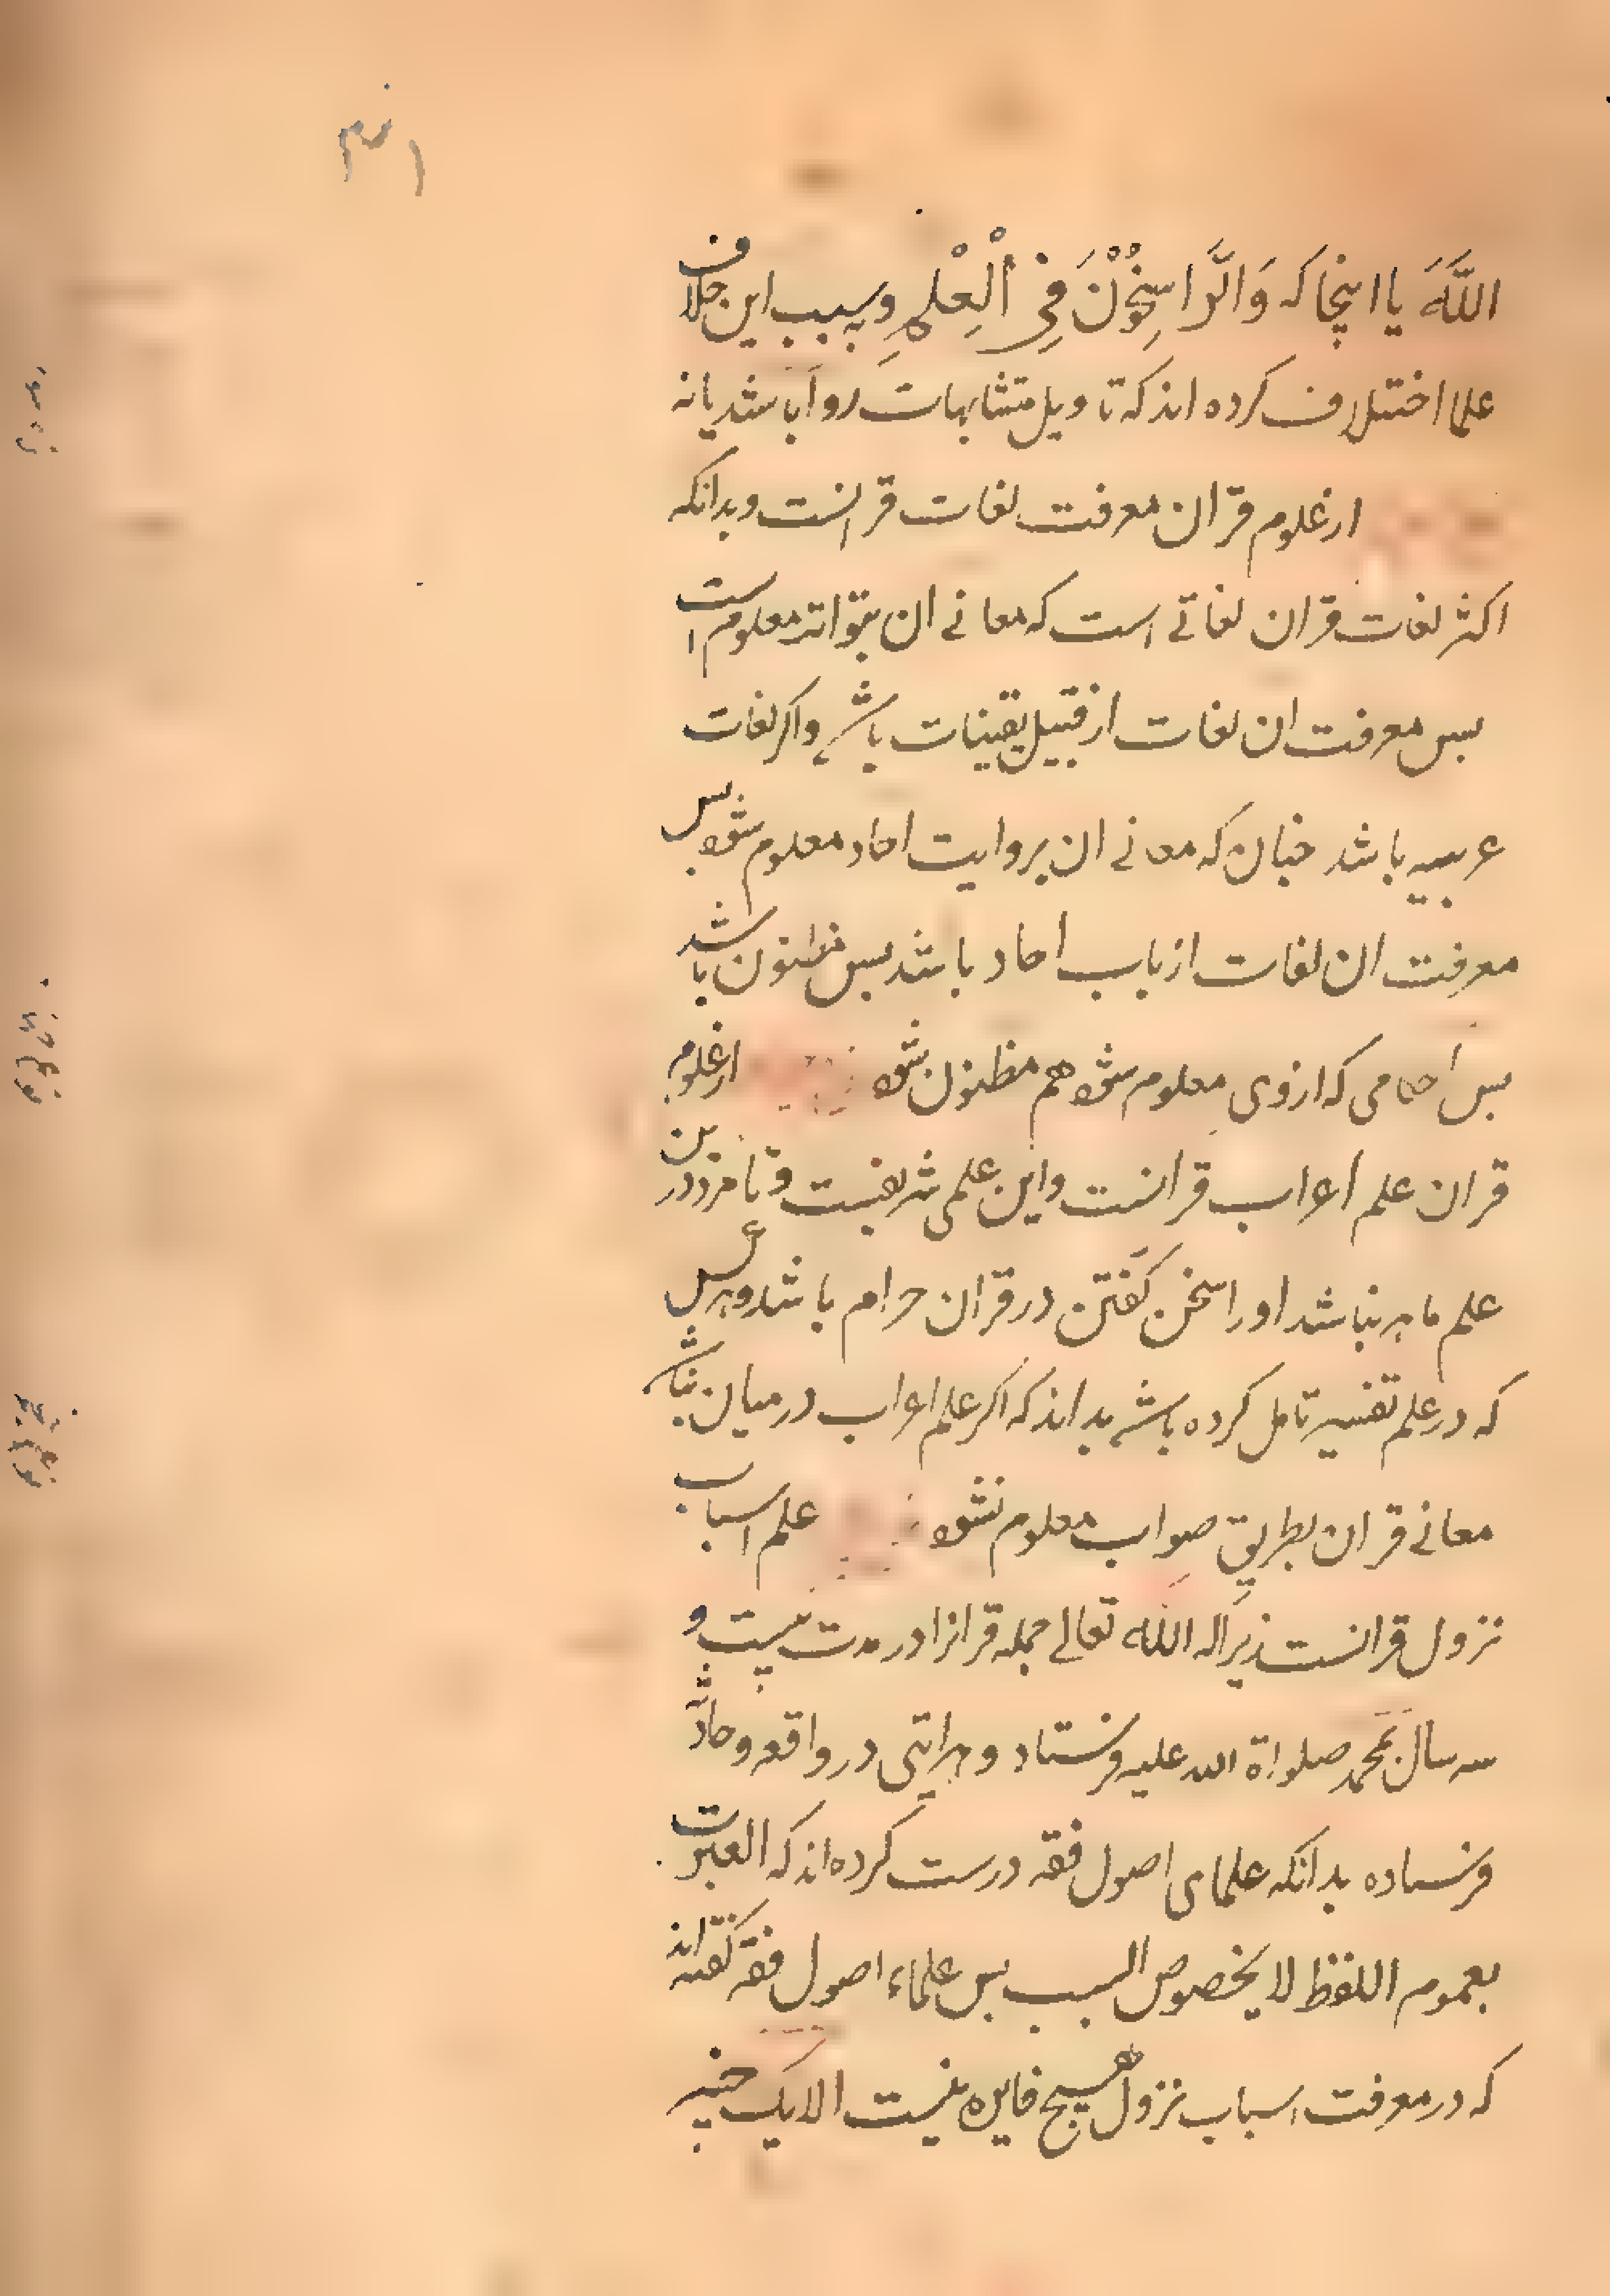 اللَّهَ یا اینجا که وَالرَّاسِخُوْنَ فِی الْعِلْمِ وبسبب این خلاف
علما اختلاف کرده اند که تاویل متشابهات روا باشد یا نه
از علوم قران معرفت لغات قرانست وبدانکه
اکثر لغات قران لغاتی است که معانی ان بتواتر معلوم است
بس معرفت ان لغات از قبیل یقینات باشد واکر لغات
باشد جنان که معانی ان بروایت احاد معلوم شود بس
معرفت ان لغات از باب احاد باشد بس مظنون باشد
بس احکامی که از وی معلوم شود هم مظنون شود از علوم
قران علم اعراب قرانست واین علمی شریفست وتا مرد درین
علم ماهر نباشد اورا سخن کفتن در قران حرام باشد وهرکس
که در علم تفسیر تامل کرده باشد بداند که اکر علم اعراب در میان نباشد
معانی قران بطریق صواب معلوم نشود علم اسباب
نزول قرانست زیرا که الله تعالی جمله قرانرا در مدت بیست و
سه سال بمحمد صلواة الله علیه فرستاد وهر ایتی در واقعه وحادثه
فرستاده بدانکه علمای اصول فقه درست کرده اند که العبرت
بعموم اللفظ لا بخصوص السبب بس علماء اصول فقه کفته اند
که در معرفت اسباب نزول هیچ فایده نیست الا یک چیز